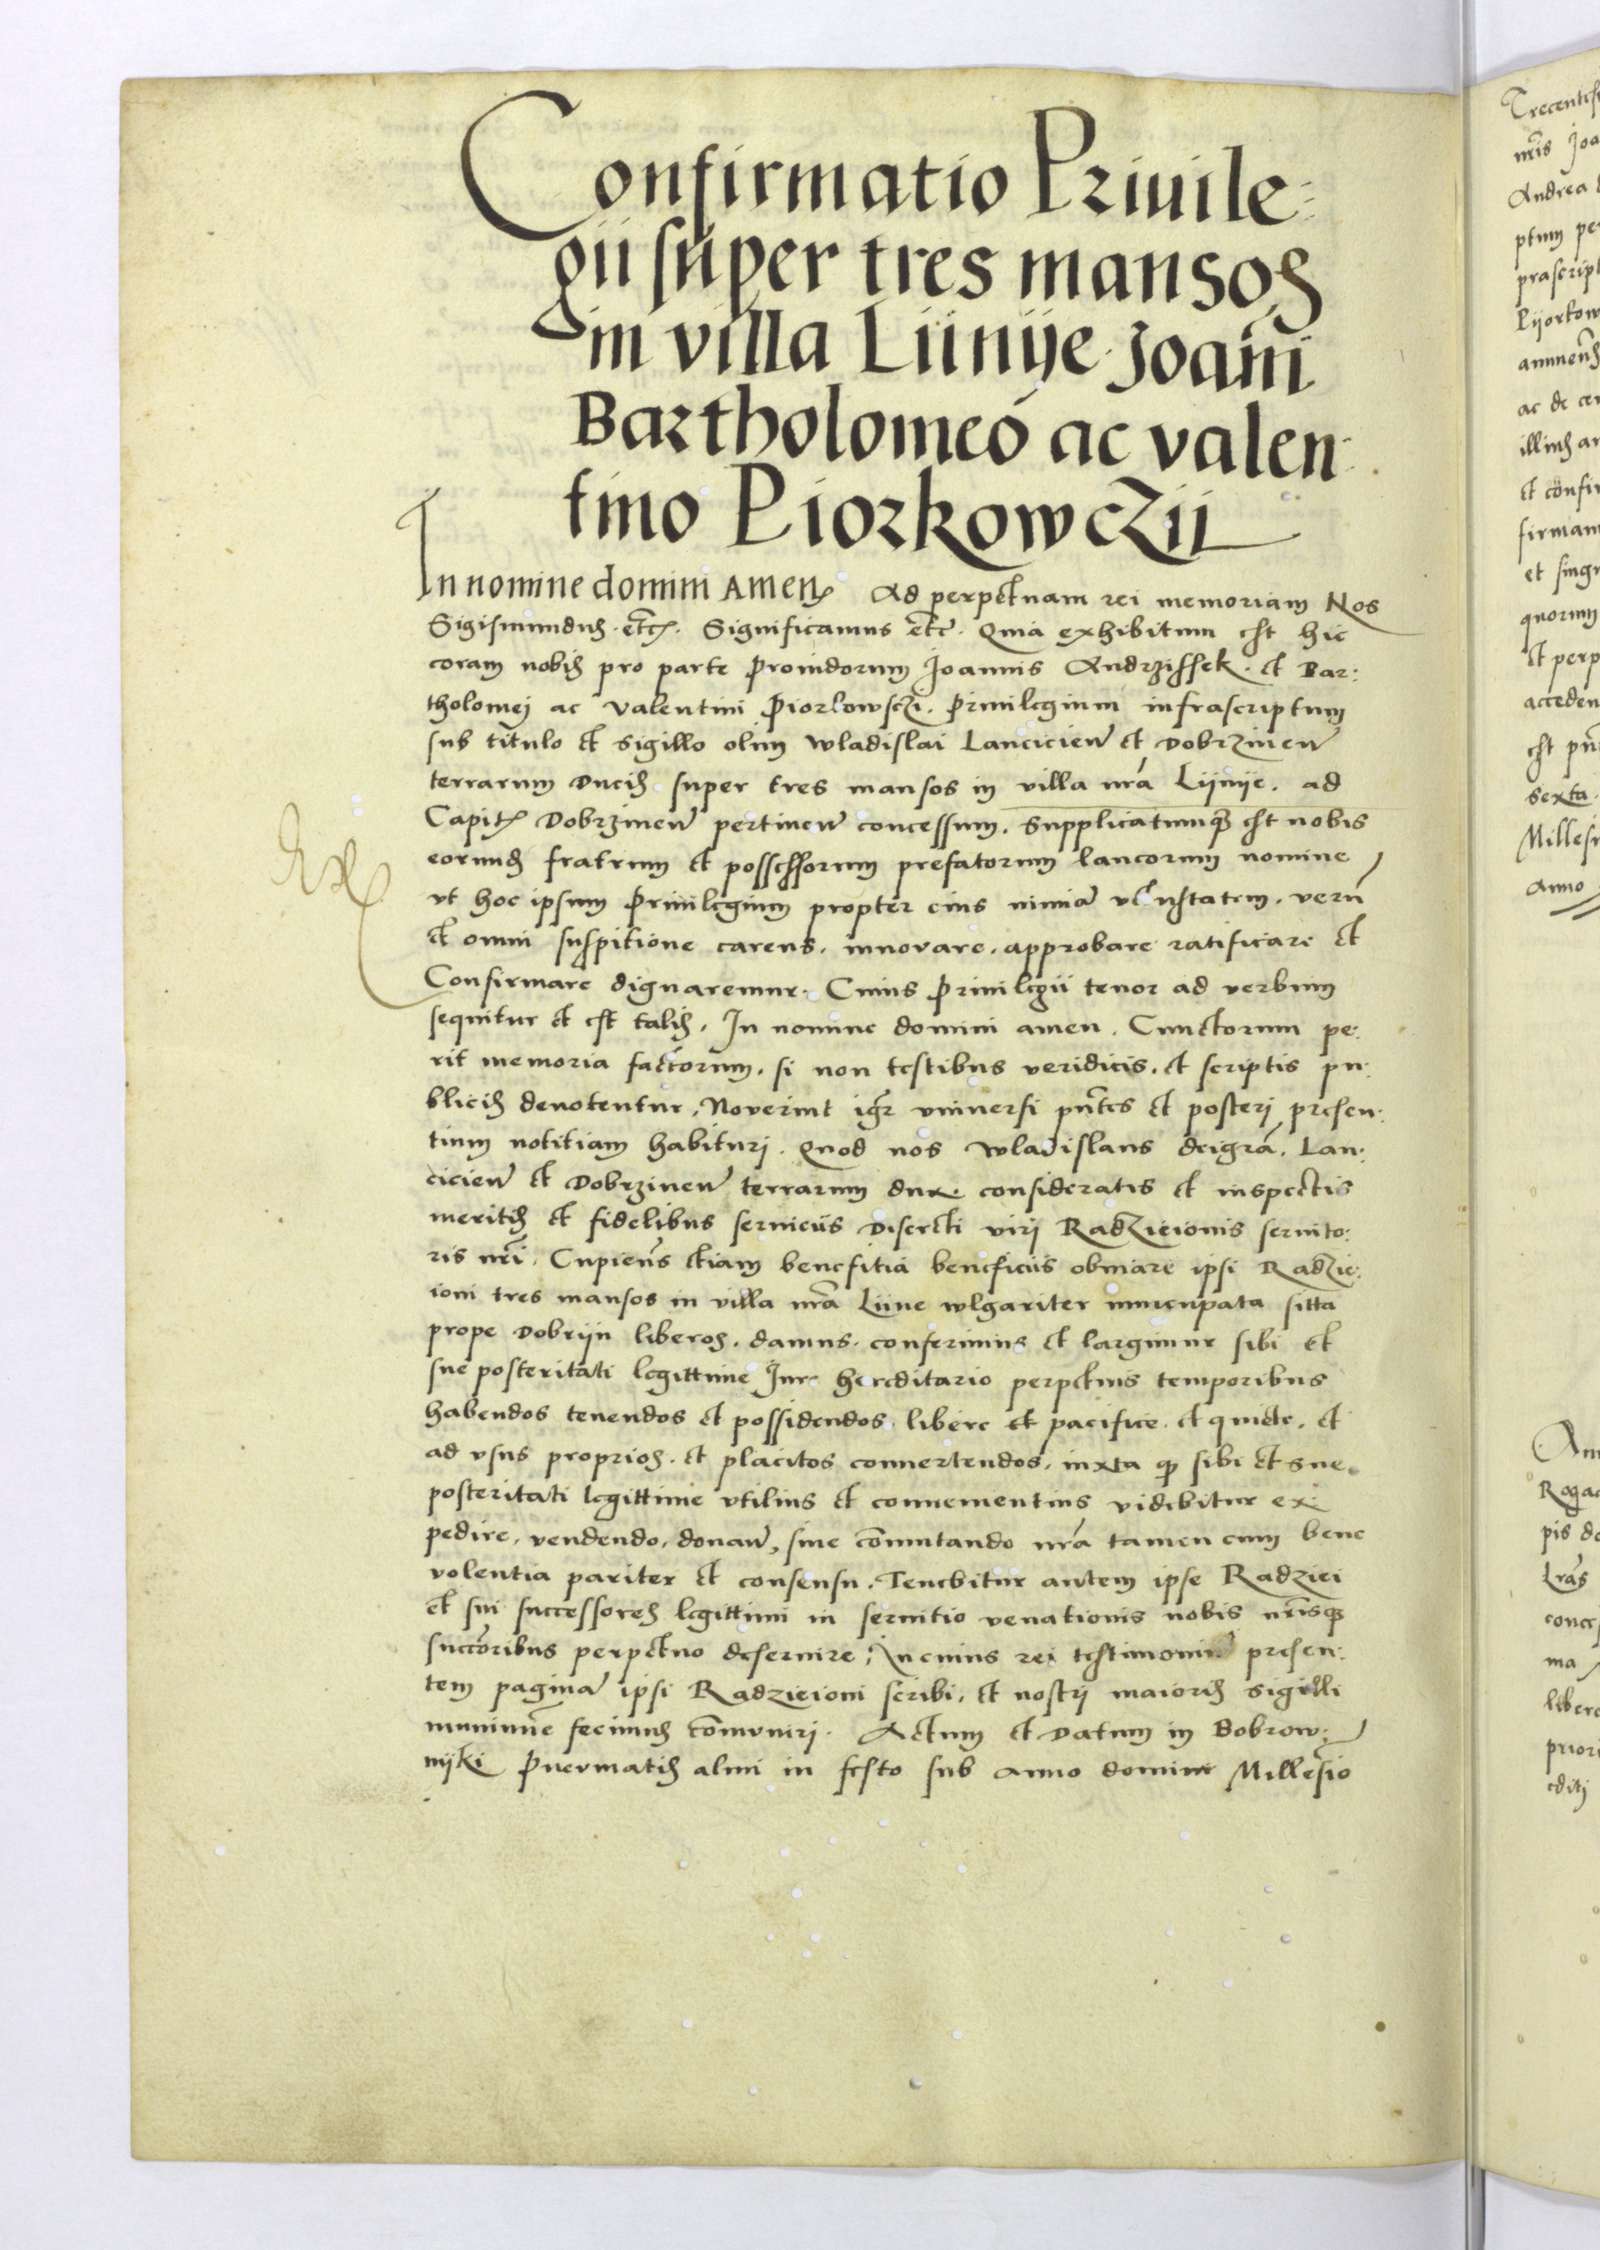 Confirmatio Priuile:
gii super tres mansos
in villa Liinÿe. Joāni
Bartholomeó ac valen:
tino Piorkowczii
In nomine domini Amen Ad perpetuam rei memoriam Nos
Sigismundus. etc̄. Significamus etc̄. Quia exhibitum est hic
coram nobis pro parte Prouidorum Joannis Andrzissek. et Bar:
tholomej ac Valentini Piorkowsczi. Priuilegium infrascriptum
sub titulo et sigillo olim Wladislai Lancicień et Dobrzineń
terrarum Ducis super tres mansos in villa nrā Lÿnÿe. ad
Capit. Dobrzineń pertineń concessum. Supplicatumq3 est nobis
eorund fratrum et possessorum prefatorum lancorum nomine
vt hoc ipsum Priuilegium propter eius nimiā vetustatem. verū
et omni suspitione carens. innovare. approbare ratificare et
Confirmare dignaremur. Cuius Priuilegii tenor ad verbum
sequitur et est talis. In nomine domini amen. Cunctorum pe:
rit memoria factorum. si non testibus veridicis. et scriptis pu:
blicis denotentur. Noverint igr̄ vniuersi pn̄tes et posterj presen:
tium notitiam habiturj. Quod nos Wladislaus deigrā. Lan:
cicień et Dobrzineń terrarum dux. consideratis et inspectis
meritis et fidelibus seruiciis Discreti virj Radzieionis seruito:
ris nrī. Cupiens etiam benefitia beneficiis obuiare ipsi Radzie:
ioni tres mansos in villa nrā Liine wlgariter nuncupata sitta
prope Dobrijn liberos. damus. conferimus et largimur sibi et
sue posteritati legittime Jure hereditario perpetuis temporibus
habendos tenendos et possidendos libere et pacifice et quiete. et
ad vsus proprios. et placitos conuertendos. iuxta q3 sibi et sue
posteritati legittime vtilius et conuenientius videbitur ex
pedire. vendendo. donań, siue cōmutando nrā tamen cum bene
volentia pariter et consensu. Tenebitur autem ipse Radziei
et sui successores legittimi in seruitio venationis nobis nrīsq3
succōribus perpetuo deseruire; In cuius rei testimoniū presen:
tem paginā ipsi Radzieioni scribi. et nostrj maioris sigilli
munimīe fecimus cōmvnirj. Actum et Datum in Dobrow:
nÿki Pnevmatis almi in festo sub anno domini Millesīo